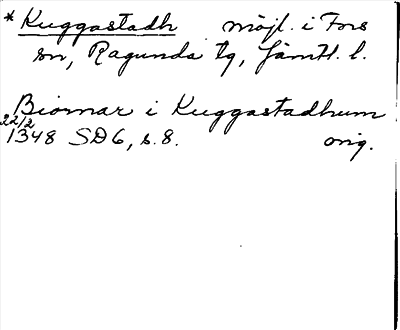 *Kuggastadh möjl. i Fors
sn, Ragunda tg, Jämtl. l.
Biornar i Kuggastadhum
22/2
1348 SD6, s. 8. orig.